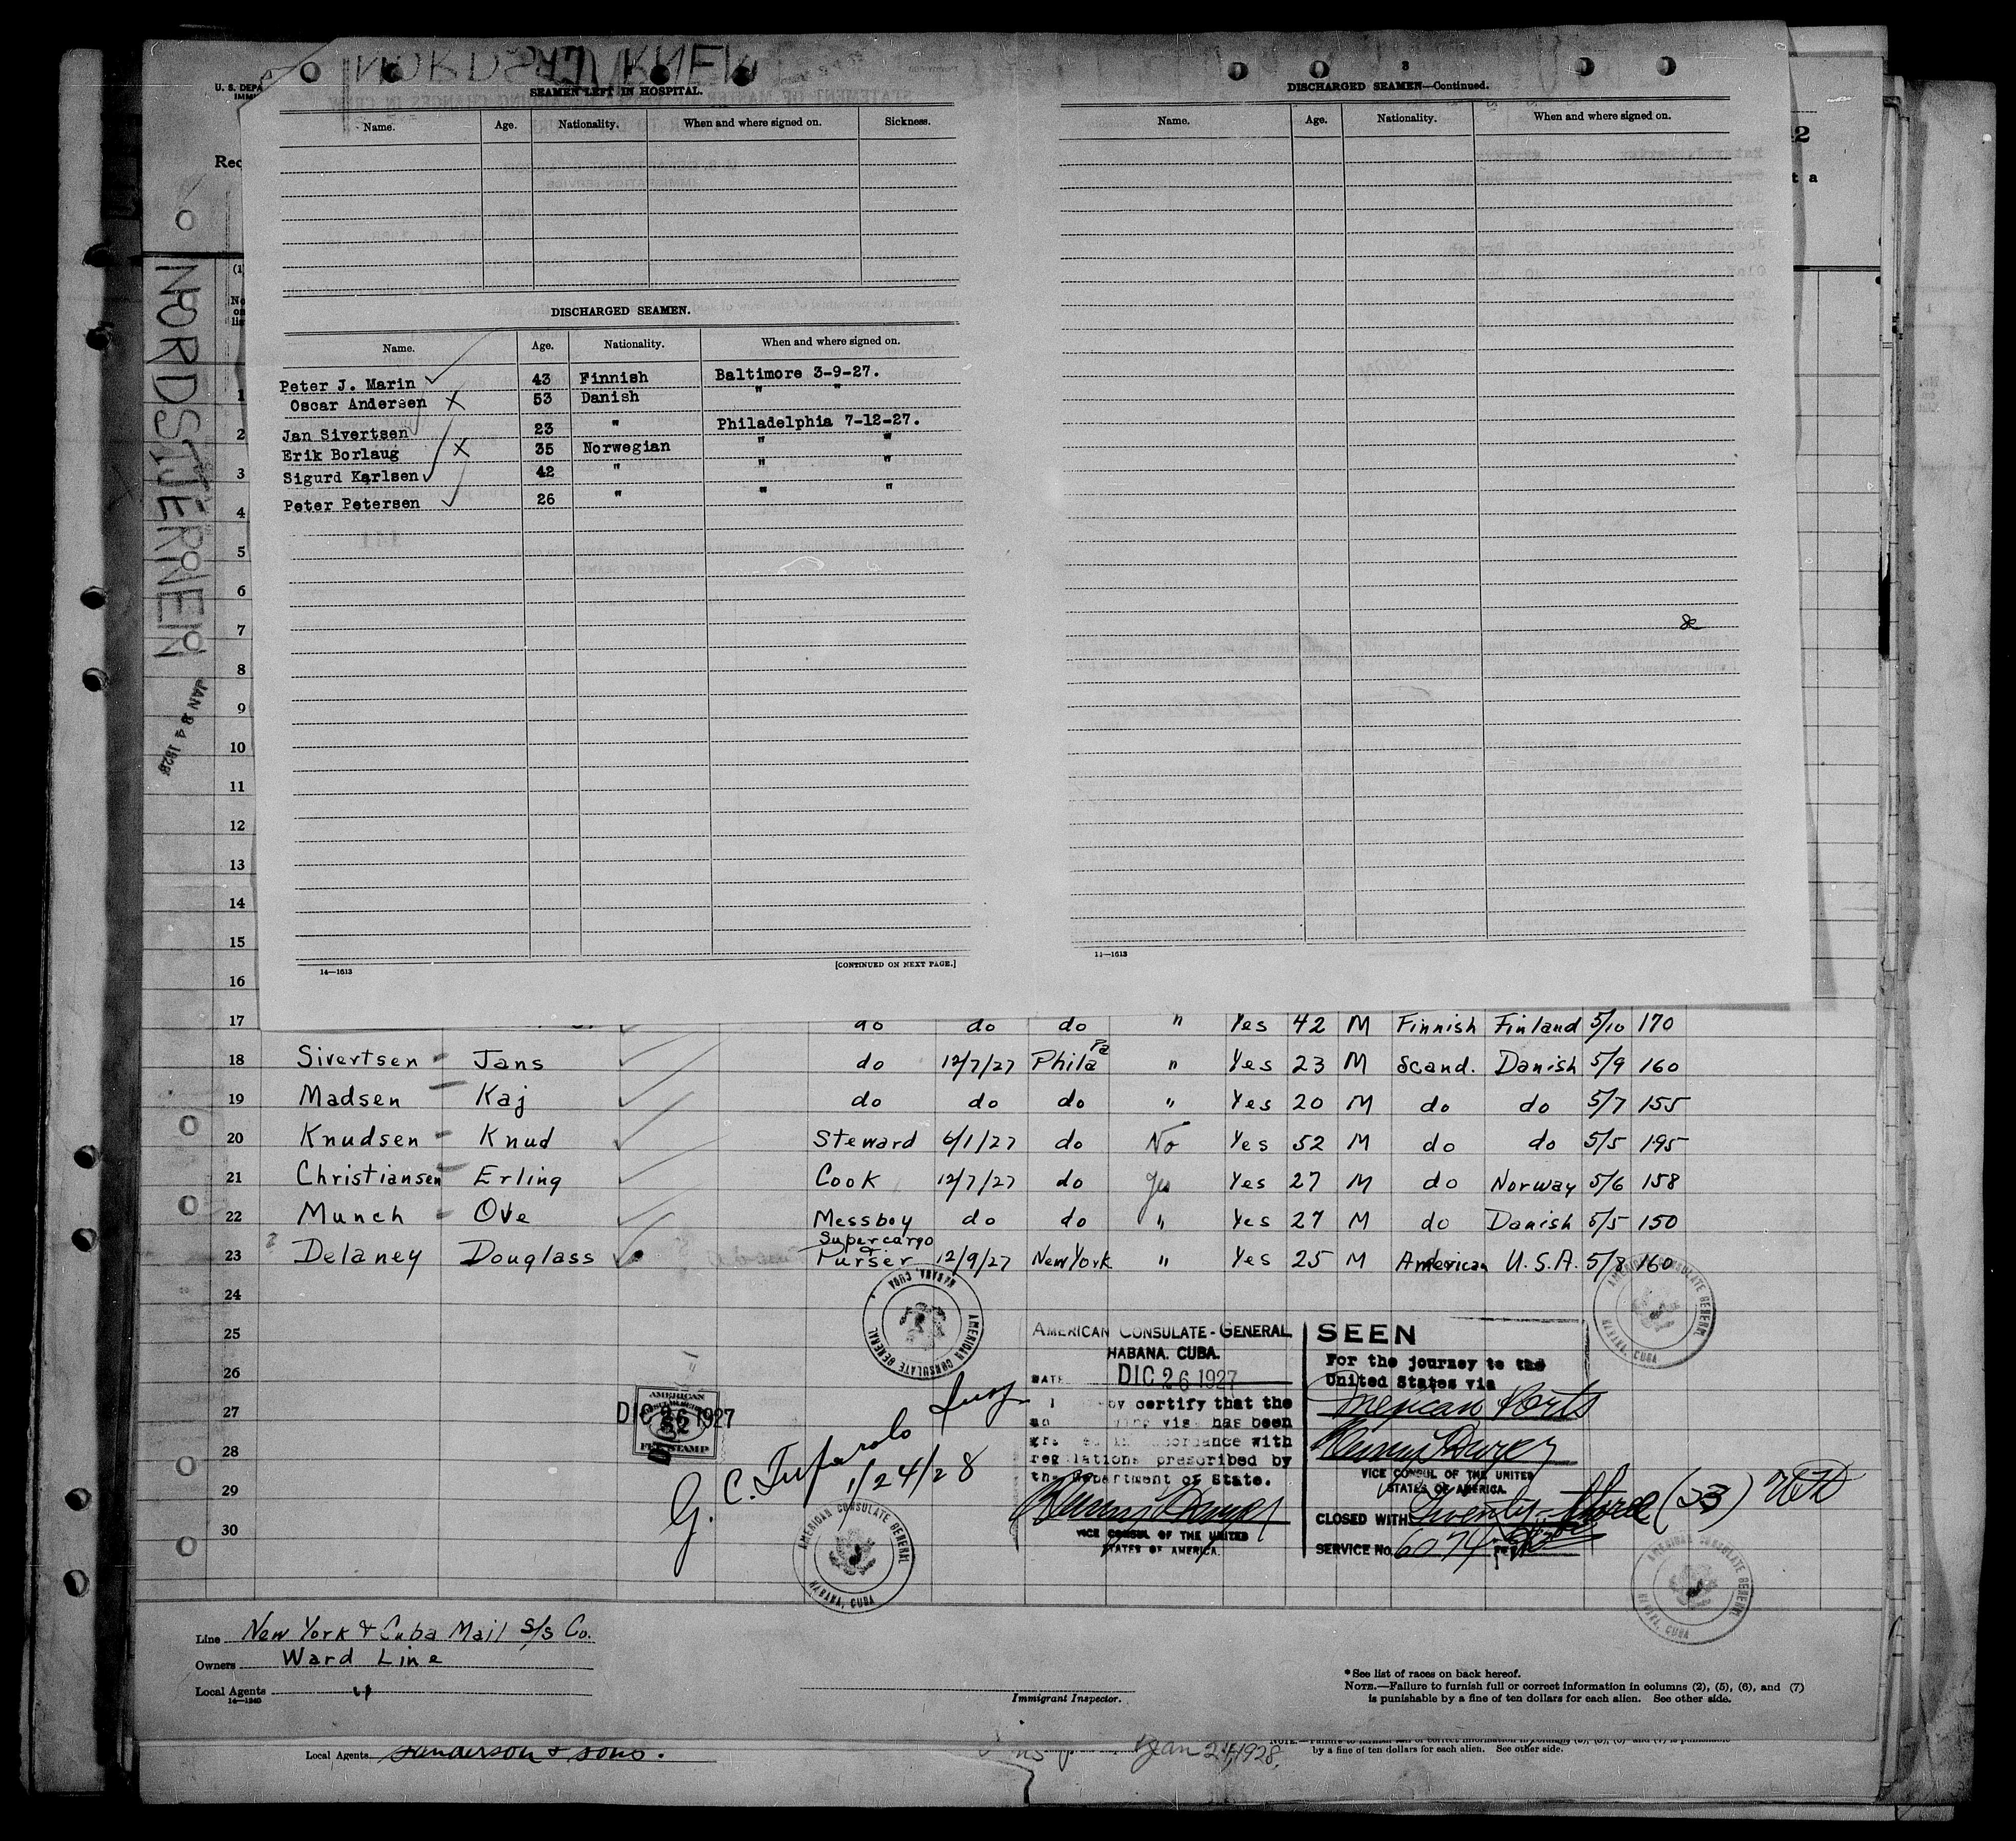 NORDSTJERNEN
U. S. DEPA
Rec
SEAMEN LEFT IN HOSPITAL.
Name. Age. Nationality. When and where signed on. Sickness.
DISCHARGED SEAMEN.
Name. Age. Nationality. When and where signed on.
Peter J. Marin 43 Finnish Baltimore 3-9-27.
Oscar Andersen X 53 Danish " "
Jan Sivertsen 23 " Philadelphia 7-12-27.
Erik Borlaug X 35 Norwegian " "
Sigurd Karlsen 42 " " "
Peter Petersen 26 " " "
14—1613 [CONTINUED ON NEXT PAGE.]
3
DISCHARGED SEAMEN—Continued.
Name. Age. Nationality. When and where signed on.
14—1613
NORDSTJERNEN
JAN 24 1928
1
2
3
4
5
6
7
8
9
10
11
12
13
14
15
16
17 do do do " Yes 42 M Finnish Finland 5/10 170
18 Sivertsen Jans do 12/7/27 Phila Pa " Yes 23 M Scand. Danish 5/9 160
19 Madsen Kaj do do do " Yes 20 M do do 5/7 155
20 Knudsen Knud Steward 6/1/27 do No Yes 52 M do do 5/5 195
21 Christiansen Erling Cook 12/7/27 do Yes Yes 27 M do Norway 5/6 158
22 Munch Ove Messboy do do " Yes 27 M do Danish 5/5 150
23 Delaney Douglass Supercargo & Purser 12/9/27 New York " Yes 25 M American U.S.A. 5/8 160
24
25
26
27
28
29
30
AMERICAN CONSULATE GENERAL HABANA, CUBA
AMERICAN CONSULATE GENERAL HABANA, CUBA
AMERICAN
FEE STAMP
DIC 26 1927
1/24/28
AMERICAN CONSULATE GENERAL HABANA, CUBA
AMERICAN CONSULATE-GENERAL
HABANA, CUBA.
DATE DIC 26 1927
I by certify that the
visa has been
in accordance with
regulations prescribed by
the Department of State.
VICE CONSUL OF THE UNITED
STATES OF AMERICA.
SEEN
For the journey to the
United States via
Mexican Ports
VICE CONSUL OF THE UNITED
STATES OF AMERICA.
CLOSED WITH Twenty-three (23)
SERVICE No. 6074
AMERICAN CONSULATE GENERAL HABANA, CUBA
Line New York & Cuba Mail S/S Co.
Owners Ward Line
Local Agents "
14—1240
Immigrant Inspector.
*See list of races on back hereof.
NOTE.—Failure to furnish full or correct information in columns (2), (5), (6), and (7)
is punishable by a fine of ten dollars for each alien. See other side.
Local Agents Sanderson & Sons.
Jan 24, 1928.
by a fine of ten dollars for each alien. See other side.